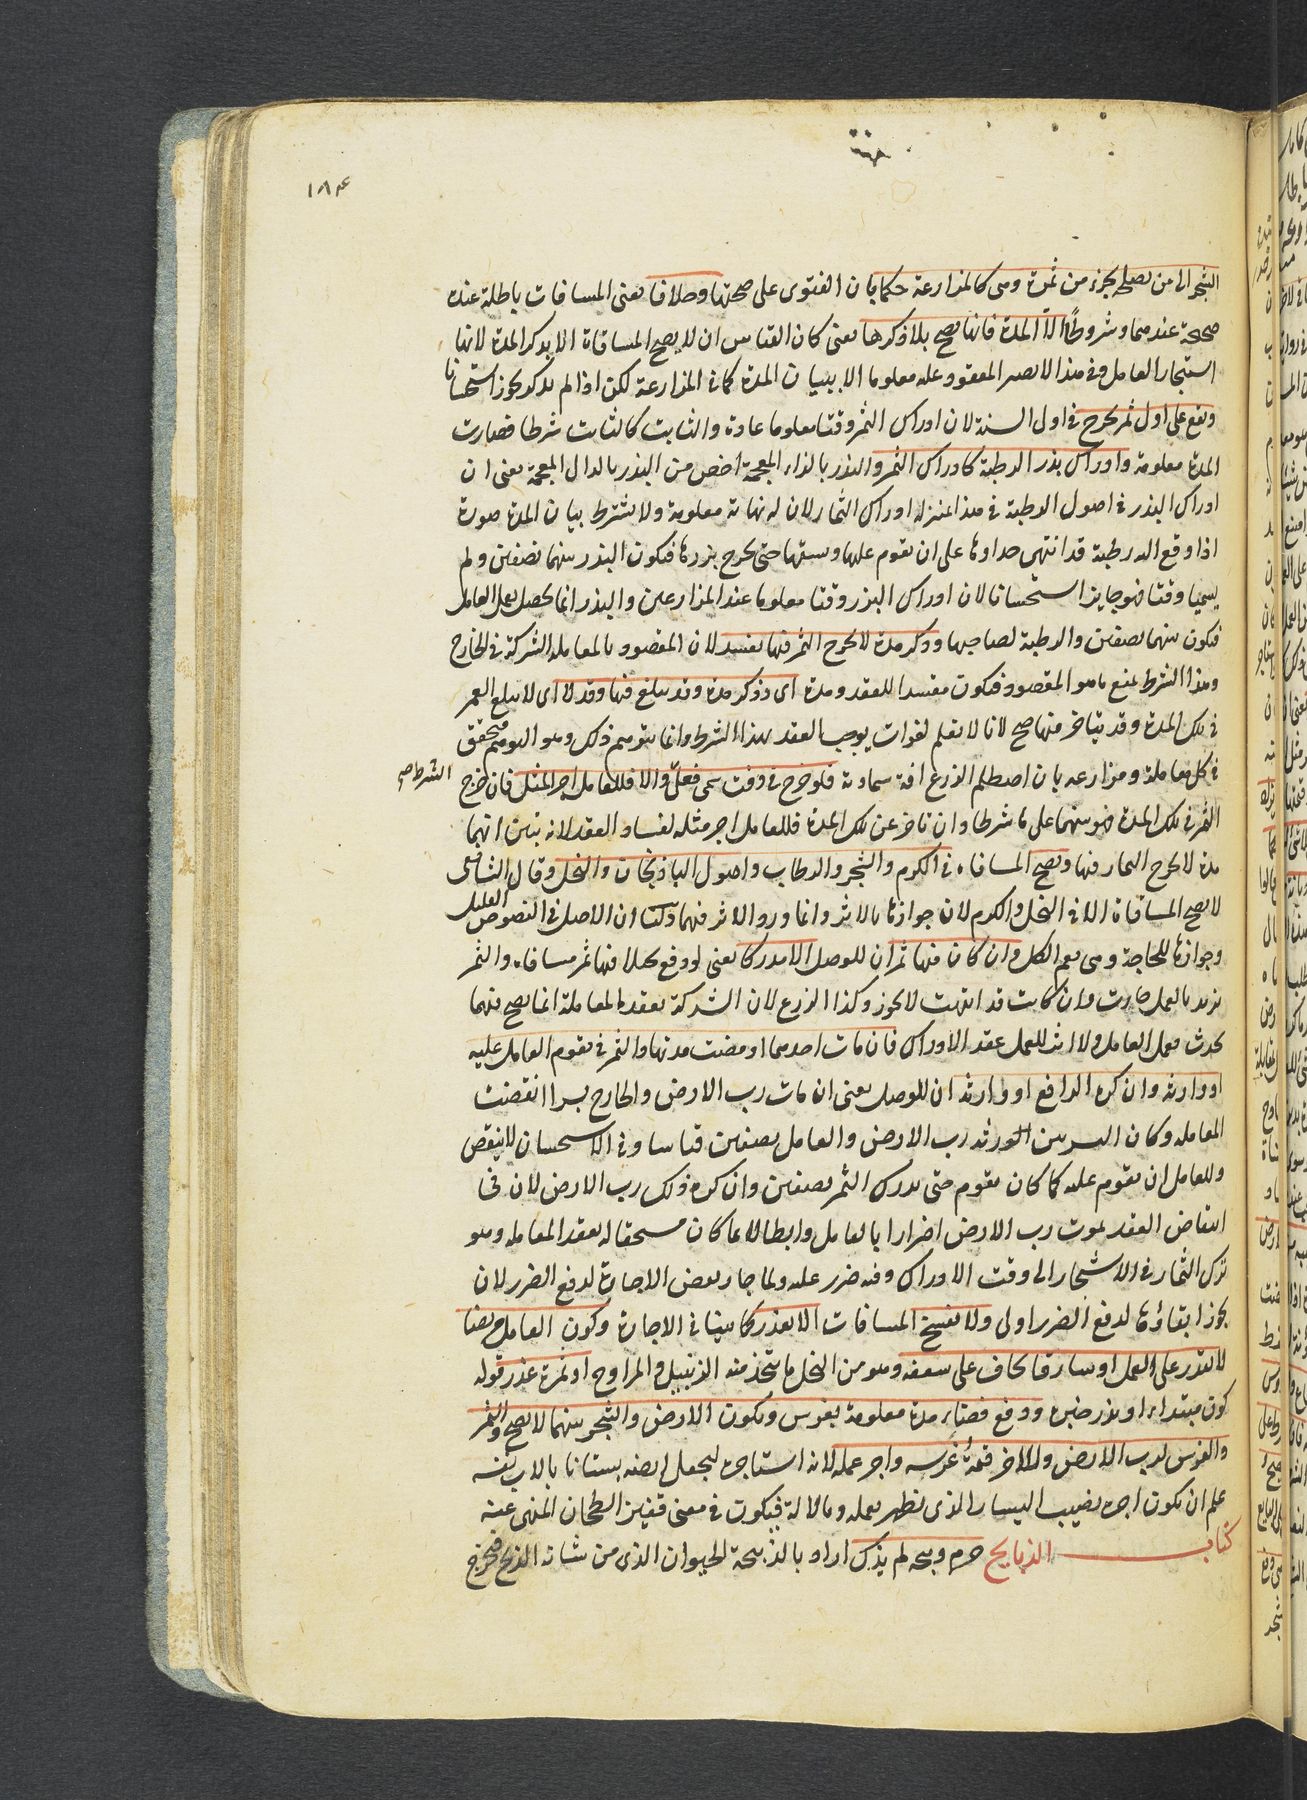 ١٨٤
الشجر الى من يصلحه بجزء من ثمره وهي كالمزارعة حكما يا ن الفتوى على صحتها وخلافا يعنى المساقات باطلة عنده
صحيحة عندهما وشروطا الا المدة فانها يصح بلا ذكرها يعنى كان القياس ان لا يصح المساقاة الا بذكر المدة لانها
استيجار العامل وفى هذا لا يصير المعقود عليه معلوما الا ببيان المدة كما فى المزارعة لكن اذا لم يذكر يجوز استحسانا
ويقع على اول ثمر يخرج فى اول السنة لان ادراك الثمر وقتا معلوما عادة والثابت كالثابت شرطا فصارت
المدة معلومة وادراك بذر الرطبة كادراك الثمر والبذر بالذاء المعجمة اخص من البذر بالدال المعجمة يعنى ان
ادراك البذر فى اصول الرطبة فى هذا المنزلة ادراك الثمار لان له نهاية معلومة ولا يشترط بيان المدة صورة
اذا وقع الرطبة قد انتهى جدادها على ان يقوم عليها ويسقيها حتى يخرج بزرها فيكون البذر بينهما نصفين ولم
يسميا وقتا فهو جايز استحسانا لان ادراك البذر وقتا معلوما عند المزارعين والبذر انما يحصل بعمل العامل
فيكون بينهما نصفين والرطبة لصاحبها وذكر مدة لا يخرج الثمر فيها يفسد لان المقصود بالمعاملة الشركة فى الخارج
وهذا الشرط يمنع ما هو المقصود فيكون مفسدا للعقد ومدة اى وذكر مدة وقد يبلغ فيها وقد لا اى لا يبلغ الثمر
فى تلك المدة وقد يتاخر منها صح لانا لا نعلم لفوات يوجب العقد بهذا الشرط وانما يتوهم ذلك وهو التوهم متحقق
فى كل معاملة ومزارعه بان اصطلم الزرع افة سماوية فلو خرج فى وقت سمى فعلى والا فللعامل اجر المثل فان خرج
الشرط صح
الثمر فى تلك المدة فهو بينهما على ما شرطا وان تاخر عن تلك المدة فللعامل اجر مثله لفساد العقد لانه تبين انهما
مدة لا يخرج الثمار فيها وتصح المساقاة فى الكرم والشجر والرطاب واصول الباذنجان والنخل وقال الشافعى
لا يصح المساقاة الا فى النخل والكرم لان جوازها بالاثر وانما ورد الاثر فيهما ولنا ان الاصل فى النصوص التعليل
وجوازها للحاجة وهى يعم الكل وان كان فيها ثمر ان للوصل الا مدركا يعنى لو دفع نخلا فيها ثمر مساقاة والثمر
يزيد بالعمل جازت وان كانت قد انتهت لا يجوز وكذا الزرع لان الشركة بعقد المعاملة انما يصح فيهما
يحدث بعمل العامل ولا اثر للعمل عقد الادراك فان مات احدهما او مضت مدتها والثمر فى يقوم العامل عليه
او وارثه وان كره الدافع او وارثه ان للوصل يعنى ان مات رب الارض والخارج بسرا انقضت
المعاملة وكان البسر بين الورثة رب الارض والعامل نصفين قياسا وفى الاستحسان لا ينقض
وللعامل ان يقوم عليه كما كان يقوم حتى يدرك الثمر نصفين وان كره ذلك رب الارض لان فى
انتقاض العقد بموت رب الارض اضرارا بالعامل وابطالا لما كان مستحقا له بعقد المعاملة وهو
ترك الثمار فى الاشجار الى وقت الادراك وفيه ضرر عليه ولما جاز نقض الاجارة لدفع الضرر لان
يجوز ابقاؤها لدفع الضرر اولى ولا تفسخ المساقات الا بعذر كما بينا فى الاجارة وكون العامل مريضا
لا يقدر على العمل او سارقا يخاف على سعفه وهو من النخل ما يتخذ منه الزنبيل والمراوح او ثمره عذر قوله
كون مبتداء او عذر خبره ودفع فضاء مدة معلومة ليغرس ويكون الارض والشجر بينهما لا يصح والثمر
والغرس لرب الارض وللاخر قيمة غرسه واجر عمله لانه استاجره ليجعل ارضه بستانا بالات نفسه
على ان يكون اجره نصيب البستان الذى يظهر بعمله وبالالة فيكون فى معنى قفيز الطحان المنهى عنه
كتاب الذبايح حرم ذبيحه لم يذك اراد بالذبيحة الحيوان الذى من شانه الذبح فيخرج